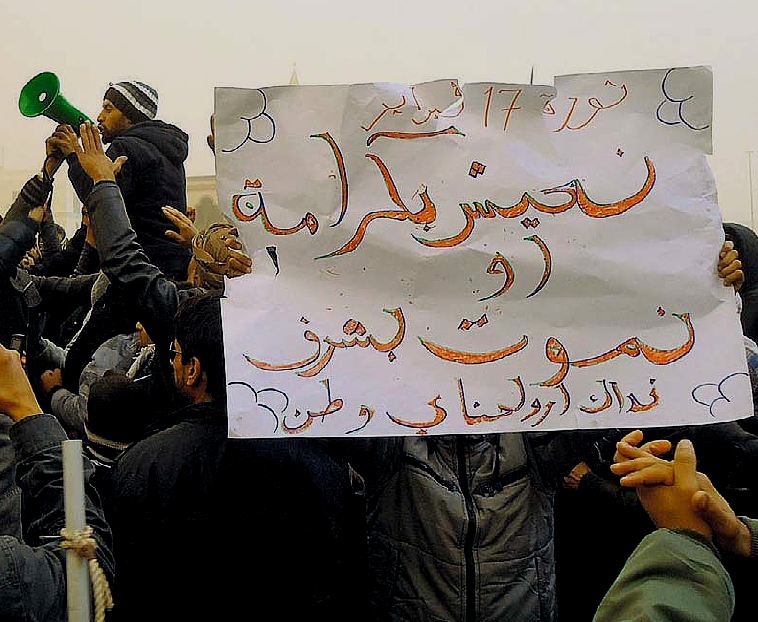 ثورة 17 فبراير
نعيش بكرامة
او
نموت بشرف
فداك ارواحنا ي وطن